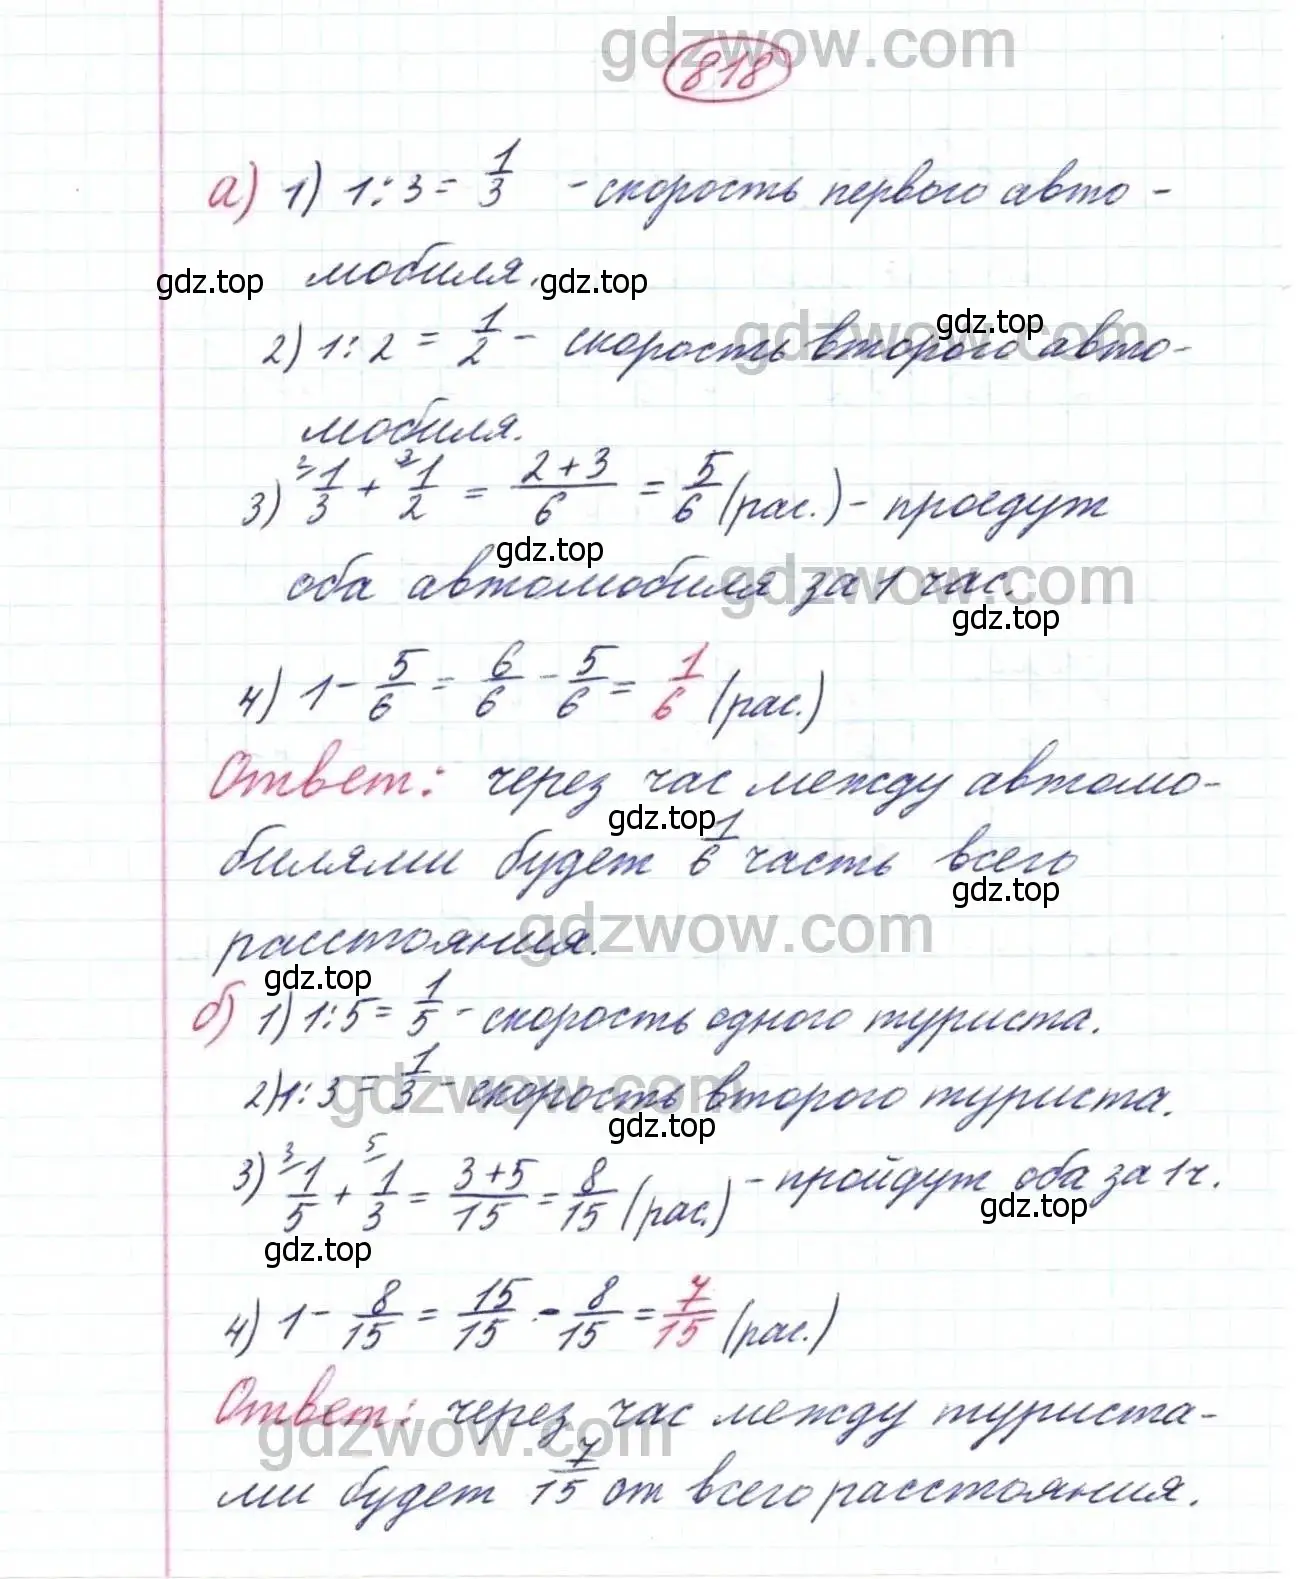 gdzwow.com
818
а) 1) 1:3 = 1/3 - скорость первого авто-
мобиля.
gdz.top gdz.top
2) 1:2 = 1/2 - скорость второго авто-
gdzwow.com gdz.top
мобиля.
3) ²⁾1/3 + ³⁾1/2 = (2+3)/6 = 5/6 (рас.) - проедут
gdz.top
оба автомобиля за 1 час.
gdzwow.com
gdz.top
4) 1 - 5/6 = 6/6 - 5/6 = 1/6 (рас.)
Ответ: через час между автомо-
gdz.top
билями будет 1/6 часть всего
gdz.top
расстояния.
gdzwow.com
gdz.top
б) 1) 1:5 = 1/5 - скорость одного туриста.
2) 1:3 = 1/3 - скорость второго туриста.
gdzwow.com
gdz.top
3) ³⁾1/5 + ⁵⁾1/3 = (3+5)/15 = 8/15 (рас.) - пройдут оба за 1ч.
gdz.top
gdz.top
4) 1 - 8/15 = 15/15 - 8/15 = 7/15 (рас.)
Ответ: через час между туриста-
gdzwow.com
ми будет 7/15 от всего расстояния.